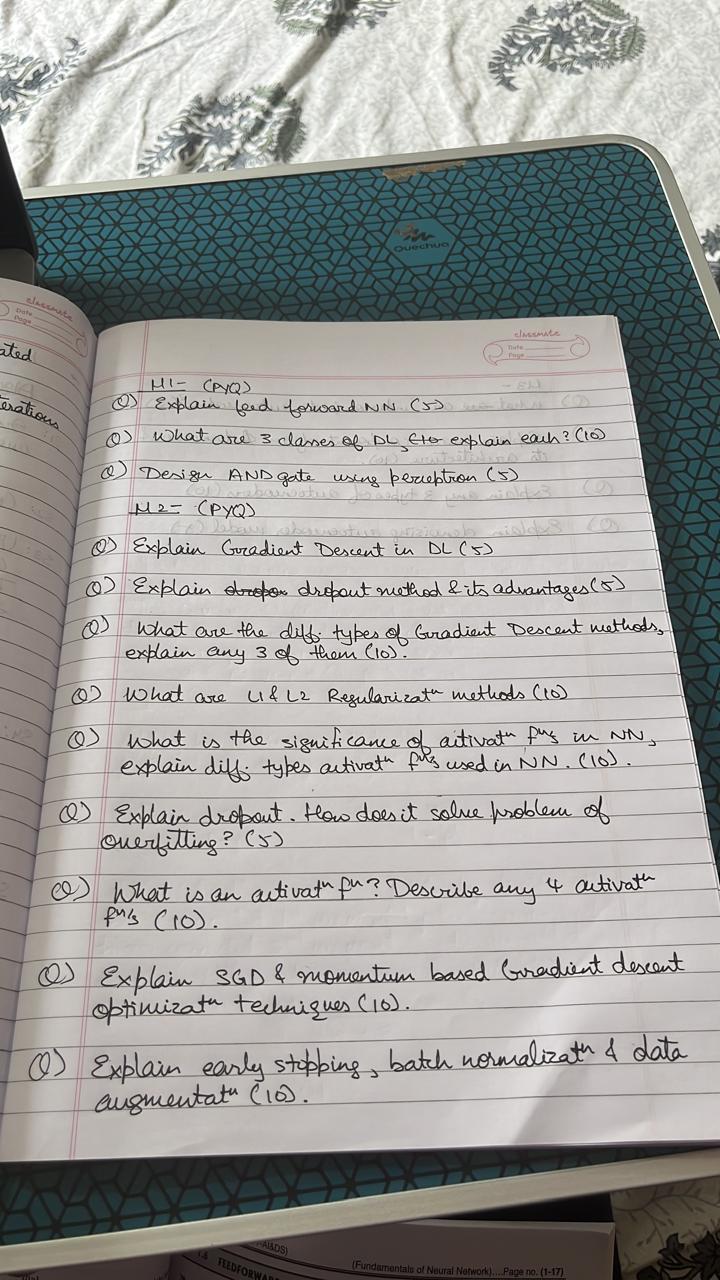 Quechua
classmate
Date
Page
ated
erations
classmate
Date
Page
M1- (PYQ)
Q) Explain feed forward NN (5)
Q) What are 3 classes of DL, explain each? (10)
Q) Design AND gate using perceptron (5)
M2- (PYQ)
Q) Explain Gradient Descent in DL (5)
Q) Explain dropout method & its advantages (5)
Q) What are the diff. types of Gradient Descent methods,
explain any 3 of them (10).
Q) What are L1 & L2 Regularizatⁿ methods (10)
Q) What is the significance of activatⁿ fⁿs in NN,
explain diff. types activatⁿ fⁿs used in NN. (10).
Q) Explain dropout. How does it solve problem of
overfitting? (5)
Q) What is an activatⁿ fⁿ? Describe any 4 activatⁿ
fⁿs (10).
Q) Explain SGD & momentum based Gradient descent
optimizatⁿ techniques (10).
Q) Explain early stopping, batch normalizatⁿ & data
augmentatⁿ (10).
AI&DS)
(Fundamentals of Neural Network)....Page no. (1-17)
1.6 FEEDFORWAR